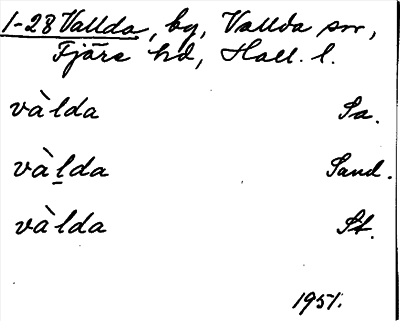 1-28 Vallda, by, Vallda sn,
Fjäre hd, Hall. l.
vàlda Sa.
vàl̲da Sand.
vàlda St.
1951.